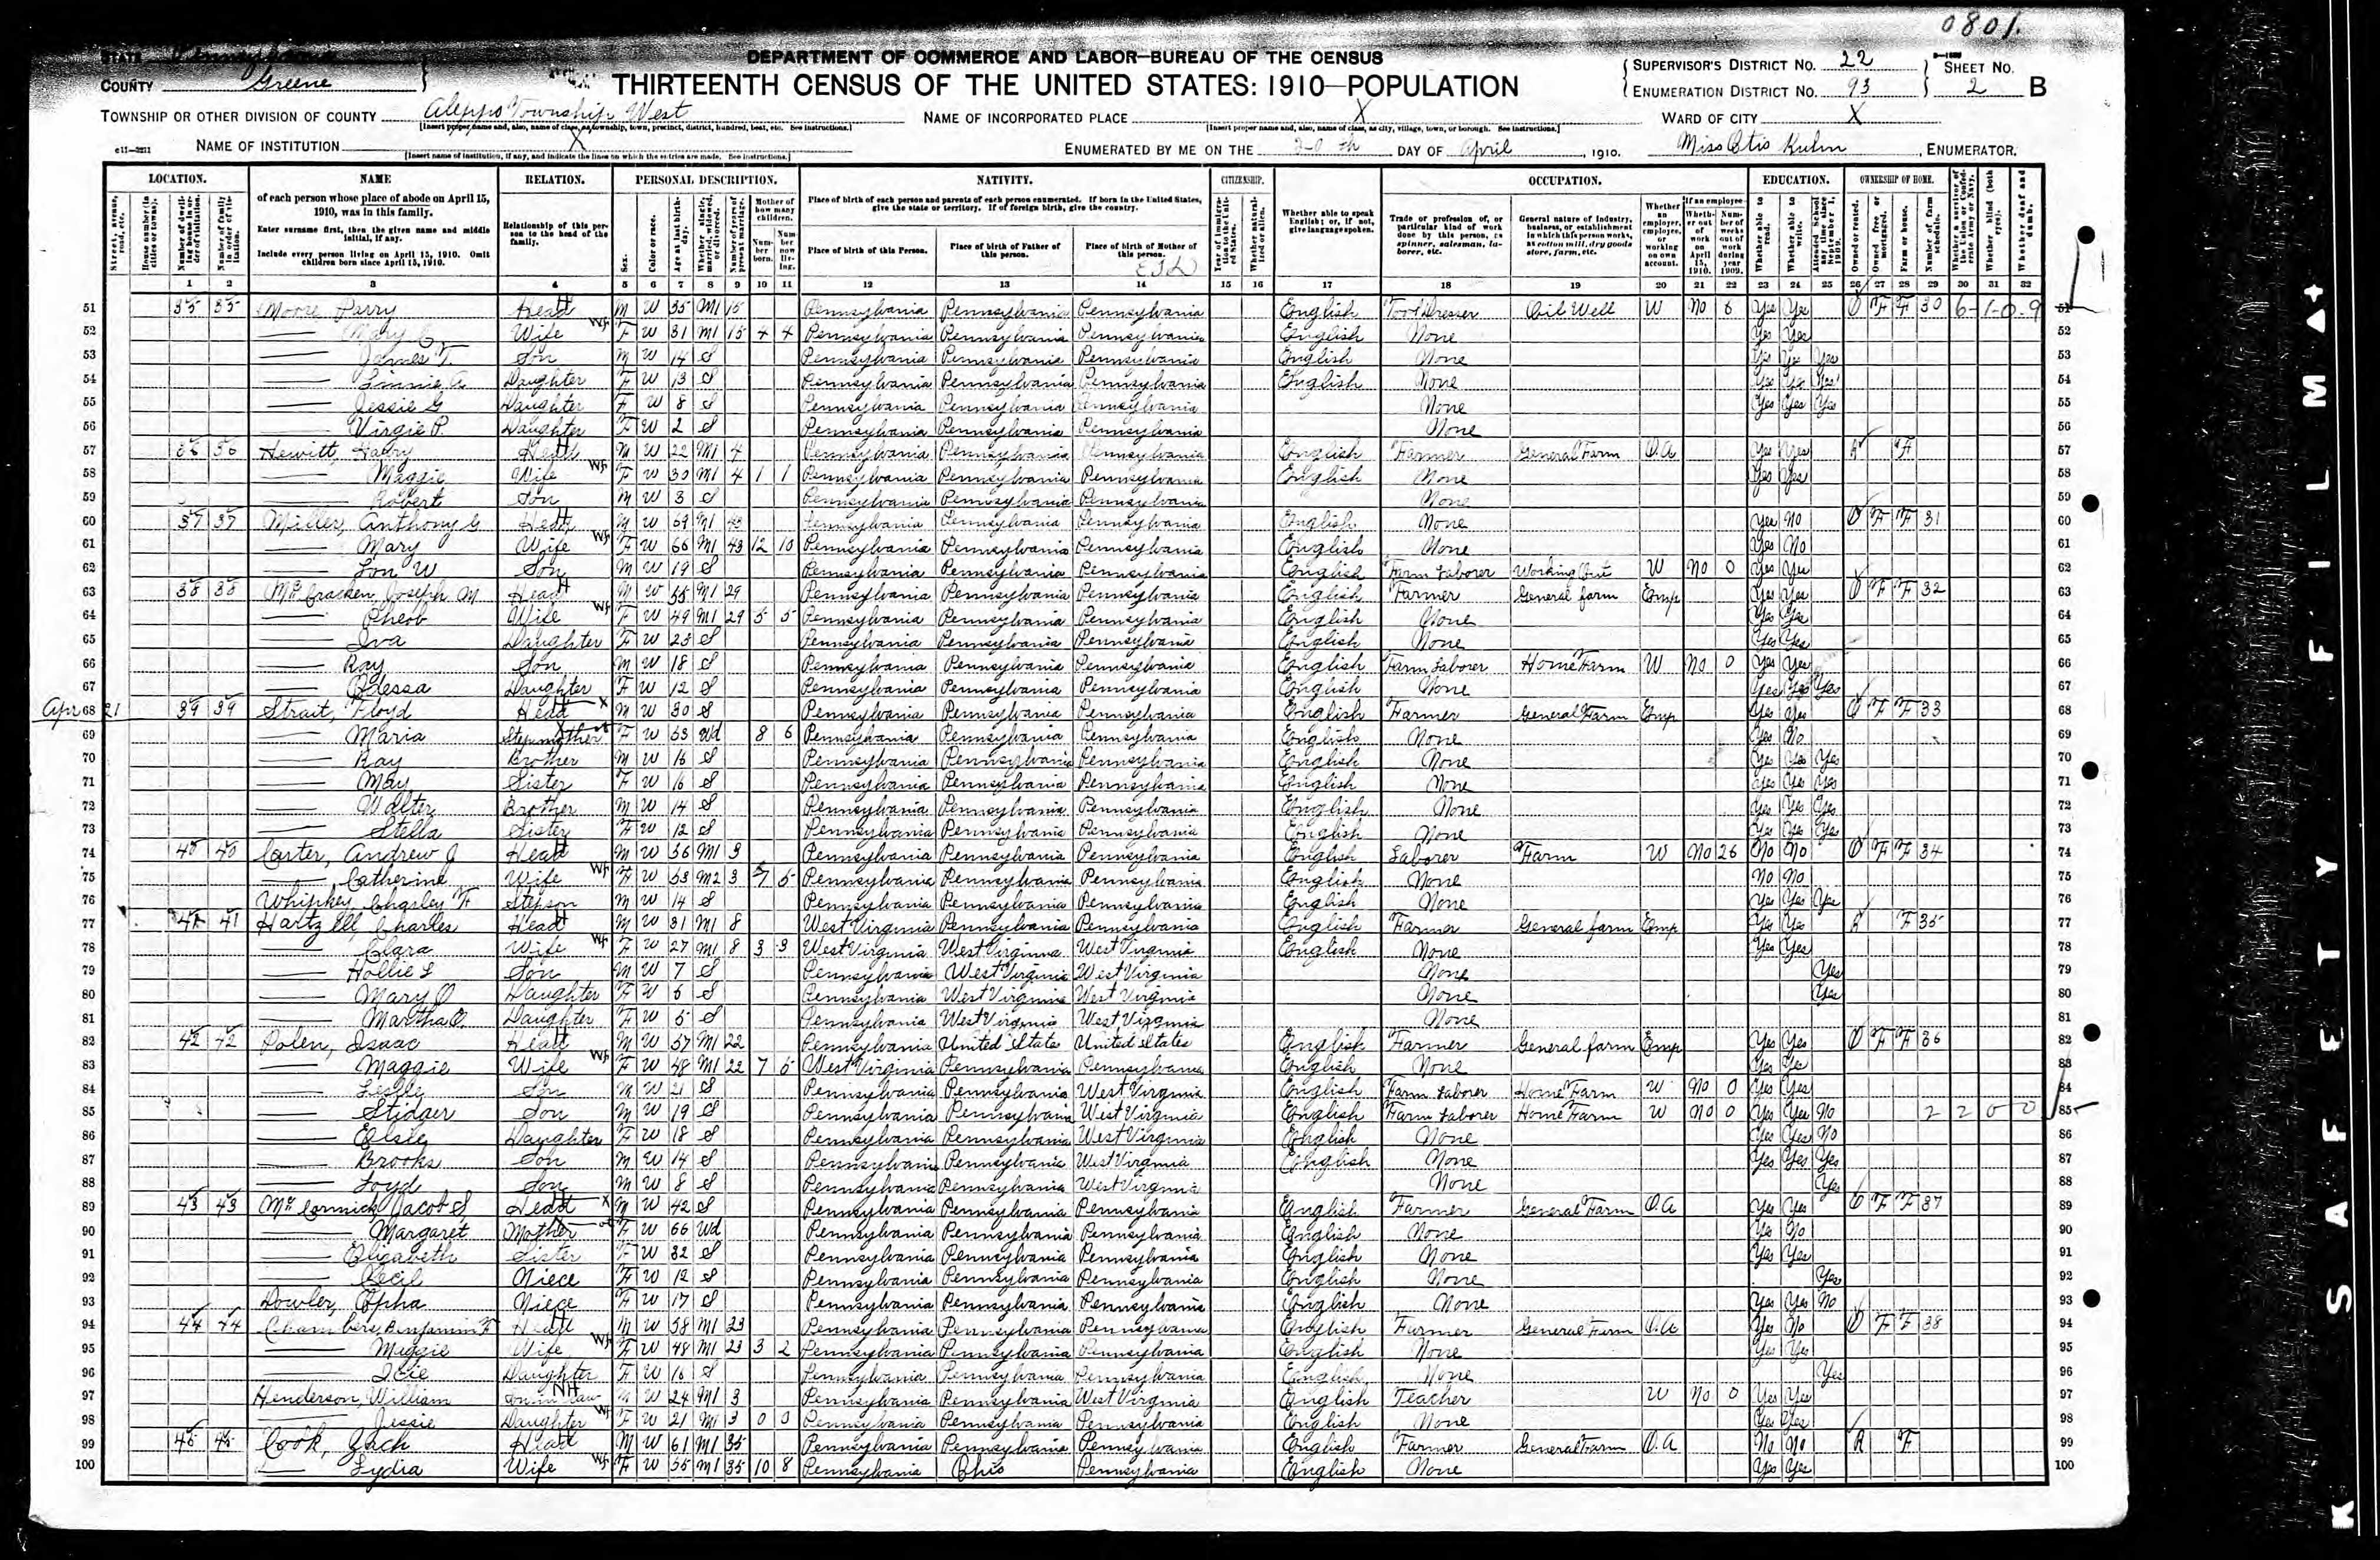 0801.
STATE Pennsylvania
DEPARTMENT OF COMMERCE AND LABOR—BUREAU OF THE CENSUS
COUNTY Greene
THIRTEENTH CENSUS OF THE UNITED STATES: 1910—POPULATION
SUPERVISOR'S DISTRICT NO. 22
ENUMERATION DISTRICT NO. 93
SHEET NO. 2 B
TOWNSHIP OR OTHER DIVISION OF COUNTY Aleppo Township West
[Insert proper name and, also, name of class, as township, town, precinct, district, hundred, beat, etc. See instructions.]
NAME OF INCORPORATED PLACE X
[Insert proper name and, also, name of class, as city, village, town, or borough. See instructions.]
WARD OF CITY X
NAME OF INSTITUTION X
[Insert name of institution, if any, and indicate the lines on which the entries are made. See instructions.]
ENUMERATED BY ME ON THE 20th DAY OF April, 1910. Miss Otis Kuhn, ENUMERATOR.
LOCATION. NAME RELATION. PERSONAL DESCRIPTION. NATIVITY. CITIZENSHIP. OCCUPATION. EDUCATION. OWNERSHIP OF HOME.
of each person whose place of abode on April 15, 1910, was in this family.
Enter surname first, then the given name and middle initial, if any.
Include every person living on April 15, 1910. Omit children born since April 15, 1910.
Relationship of this person to the head of the family.
Place of birth of each person and parents of each person enumerated. If born in the United States, give the state or territory. If of foreign birth, give the country.
Place of birth of this Person. Place of birth of Father of this person. Place of birth of Mother of this person.
Whether able to speak English; or, if not, give language spoken.
1 2 3 4 5 6 7 8 9 10 11 12 13 14 15 16 17 18 19 20 21 22 23 24 25 26 27 28 29 30 31 32
51 35 35 Moore Harry Head M W 35 M1 15 Pennsylvania Pennsylvania Pennsylvania English Tool Dresser Oil Well W No 6 Yes Yes O F F 30 6-1-0-9 51
52 Mary C Wife F W 31 M1 15 4 4 Pennsylvania Pennsylvania Pennsylvania English None Yes Yes 52
53 James T. Son M W 14 S Pennsylvania Pennsylvania Pennsylvania English None Yes Yes Yes 53
54 Daughter F W 13 S Pennsylvania Pennsylvania Pennsylvania English None Yes Yes Yes 54
55 Jessie G Daughter F W 8 S Pennsylvania Pennsylvania Pennsylvania None Yes Yes Yes 55
56 Virgie P. Daughter F W 2 S Pennsylvania Pennsylvania Pennsylvania None 56
57 36 36 Hewitt, Harry Head M W 22 M1 4 Pennsylvania Pennsylvania Pennsylvania English Farmer General Farm O.A Yes Yes R F 57
58 Maggie Wife F W 30 M1 4 1 1 Pennsylvania Pennsylvania Pennsylvania English None Yes Yes 58
59 Robert Son M W 3 S Pennsylvania Pennsylvania Pennsylvania None 59
60 37 37 Miller, Anthony G Head M W 69 M1 43 Pennsylvania Pennsylvania Pennsylvania English None Yes No O F F 31 60
61 Mary Wife F W 66 M1 43 12 10 Pennsylvania Pennsylvania Pennsylvania English None Yes No 61
62 Lon W Son M W 19 S Pennsylvania Pennsylvania Pennsylvania English Farm Laborer Working Out W No 0 Yes Yes 62
63 38 38 McCracken, Joseph M Head M W 55 M1 29 Pennsylvania Pennsylvania Pennsylvania English Farmer General farm Emp Yes Yes O F F 32 63
64 Pheob Wife F W 49 M1 29 5 5 Pennsylvania Pennsylvania Pennsylvania English None Yes Yes 64
65 Iva Daughter F W 23 S Pennsylvania Pennsylvania Pennsylvania English None Yes Yes 65
66 Ray Son M W 18 S Pennsylvania Pennsylvania Pennsylvania English Farm Laborer Home Farm W No 0 Yes Yes 66
67 Odessa Daughter F W 12 S Pennsylvania Pennsylvania Pennsylvania English None Yes Yes Yes 67
Apr 21 68 39 39 Strait, Floyd Head M W 30 S Pennsylvania Pennsylvania Pennsylvania English Farmer General Farm Emp Yes Yes O F F 33 68
69 Maria Stepmother F W 53 Wd 8 6 Pennsylvania Pennsylvania Pennsylvania English None Yes No 69
70 Ray Brother M W 16 S Pennsylvania Pennsylvania Pennsylvania English None Yes Yes Yes 70
71 May Sister F W 16 S Pennsylvania Pennsylvania Pennsylvania English None Yes Yes Yes 71
72 Walter Brother M W 14 S Pennsylvania Pennsylvania Pennsylvania English None Yes Yes Yes 72
73 Stella Sister F W 12 S Pennsylvania Pennsylvania Pennsylvania English None Yes Yes Yes 73
74 40 40 Carter, Andrew J Head M W 56 M1 3 Pennsylvania Pennsylvania Pennsylvania English Laborer Farm W No 26 No No O F F 34 74
75 Catherine Wife F W 53 M2 3 7 5 Pennsylvania Pennsylvania Pennsylvania English None No No 75
76 Whipkey, F Stepson M W 14 S Pennsylvania Pennsylvania Pennsylvania English None Yes Yes Yes 76
77 41 41 Hartzell, Charles Head M W 31 M1 8 West Virginia Pennsylvania Pennsylvania English Farmer General farm Emp Yes Yes R F 35 77
78 Clara Wife F W 27 M1 8 3 3 West Virginia West Virginia West Virginia English None Yes Yes 78
79 Hollie L Son M W 7 S Pennsylvania West Virginia West Virginia None Yes 79
80 Mary O Daughter F W 6 S Pennsylvania West Virginia West Virginia None Yes 80
81 Martha O. Daughter F W 5 S Pennsylvania West Virginia West Virginia None 81
82 42 42 Polen, Isaac Head M W 57 M1 22 Pennsylvania United States United States English Farmer General farm Emp Yes Yes O F F 36 82
83 Maggie Wife F W 48 M1 22 7 5 West Virginia Pennsylvania Pennsylvania English None Yes Yes 83
84 Leslie Son M W 21 S Pennsylvania Pennsylvania West Virginia English Farm Laborer Home Farm W No 0 Yes Yes 84
85 Stidger Son M W 19 S Pennsylvania Pennsylvania West Virginia English Farm Laborer Home Farm W No 0 Yes Yes No 2 2 0 0 85
86 Elsie Daughter F W 18 S Pennsylvania Pennsylvania West Virginia English None Yes Yes No 86
87 Brooks Son M W 14 S Pennsylvania Pennsylvania West Virginia English None Yes Yes Yes 87
88 Loyd Son M W 8 S Pennsylvania Pennsylvania West Virginia None Yes 88
89 43 43 McCormick, Jacob S Head M W 42 S Pennsylvania Pennsylvania Pennsylvania English Farmer General Farm O.A Yes Yes O F F 37 89
90 Margaret Mother F W 66 Wd Pennsylvania Pennsylvania Pennsylvania English None Yes No 90
91 Elizabeth Sister F W 32 S Pennsylvania Pennsylvania Pennsylvania English None Yes Yes 91
92 Cecil Niece F W 12 S Pennsylvania Pennsylvania Pennsylvania English None Yes 92
93 Dowler, Opha Niece F W 17 S Pennsylvania Pennsylvania Pennsylvania English None Yes Yes No 93
94 44 44 Chambers, Benjamin F Head M W 58 M1 23 Pennsylvania Pennsylvania Pennsylvania English Farmer General Farm O.A Yes No O F F 38 94
95 Maggie Wife F W 48 M1 23 3 2 Pennsylvania Pennsylvania Pennsylvania English None Yes Yes 95
96 Icie Daughter F W 16 S Pennsylvania Pennsylvania Pennsylvania English None Yes 96
97 Henderson, William Son in law M W 24 M1 3 Pennsylvania Pennsylvania West Virginia English Teacher W No 0 Yes Yes 97
98 Jessie Daughter F W 21 M1 3 0 0 Pennsylvania Pennsylvania Pennsylvania English None Yes Yes 98
99 45 45 Cook, Zach Head M W 61 M1 35 Pennsylvania Pennsylvania Pennsylvania English Farmer General Farm O.A No No R F 99
100 Lydia Wife F W 55 M1 35 10 8 Pennsylvania Ohio Pennsylvania English None Yes Yes 100
K SAFETY FILM